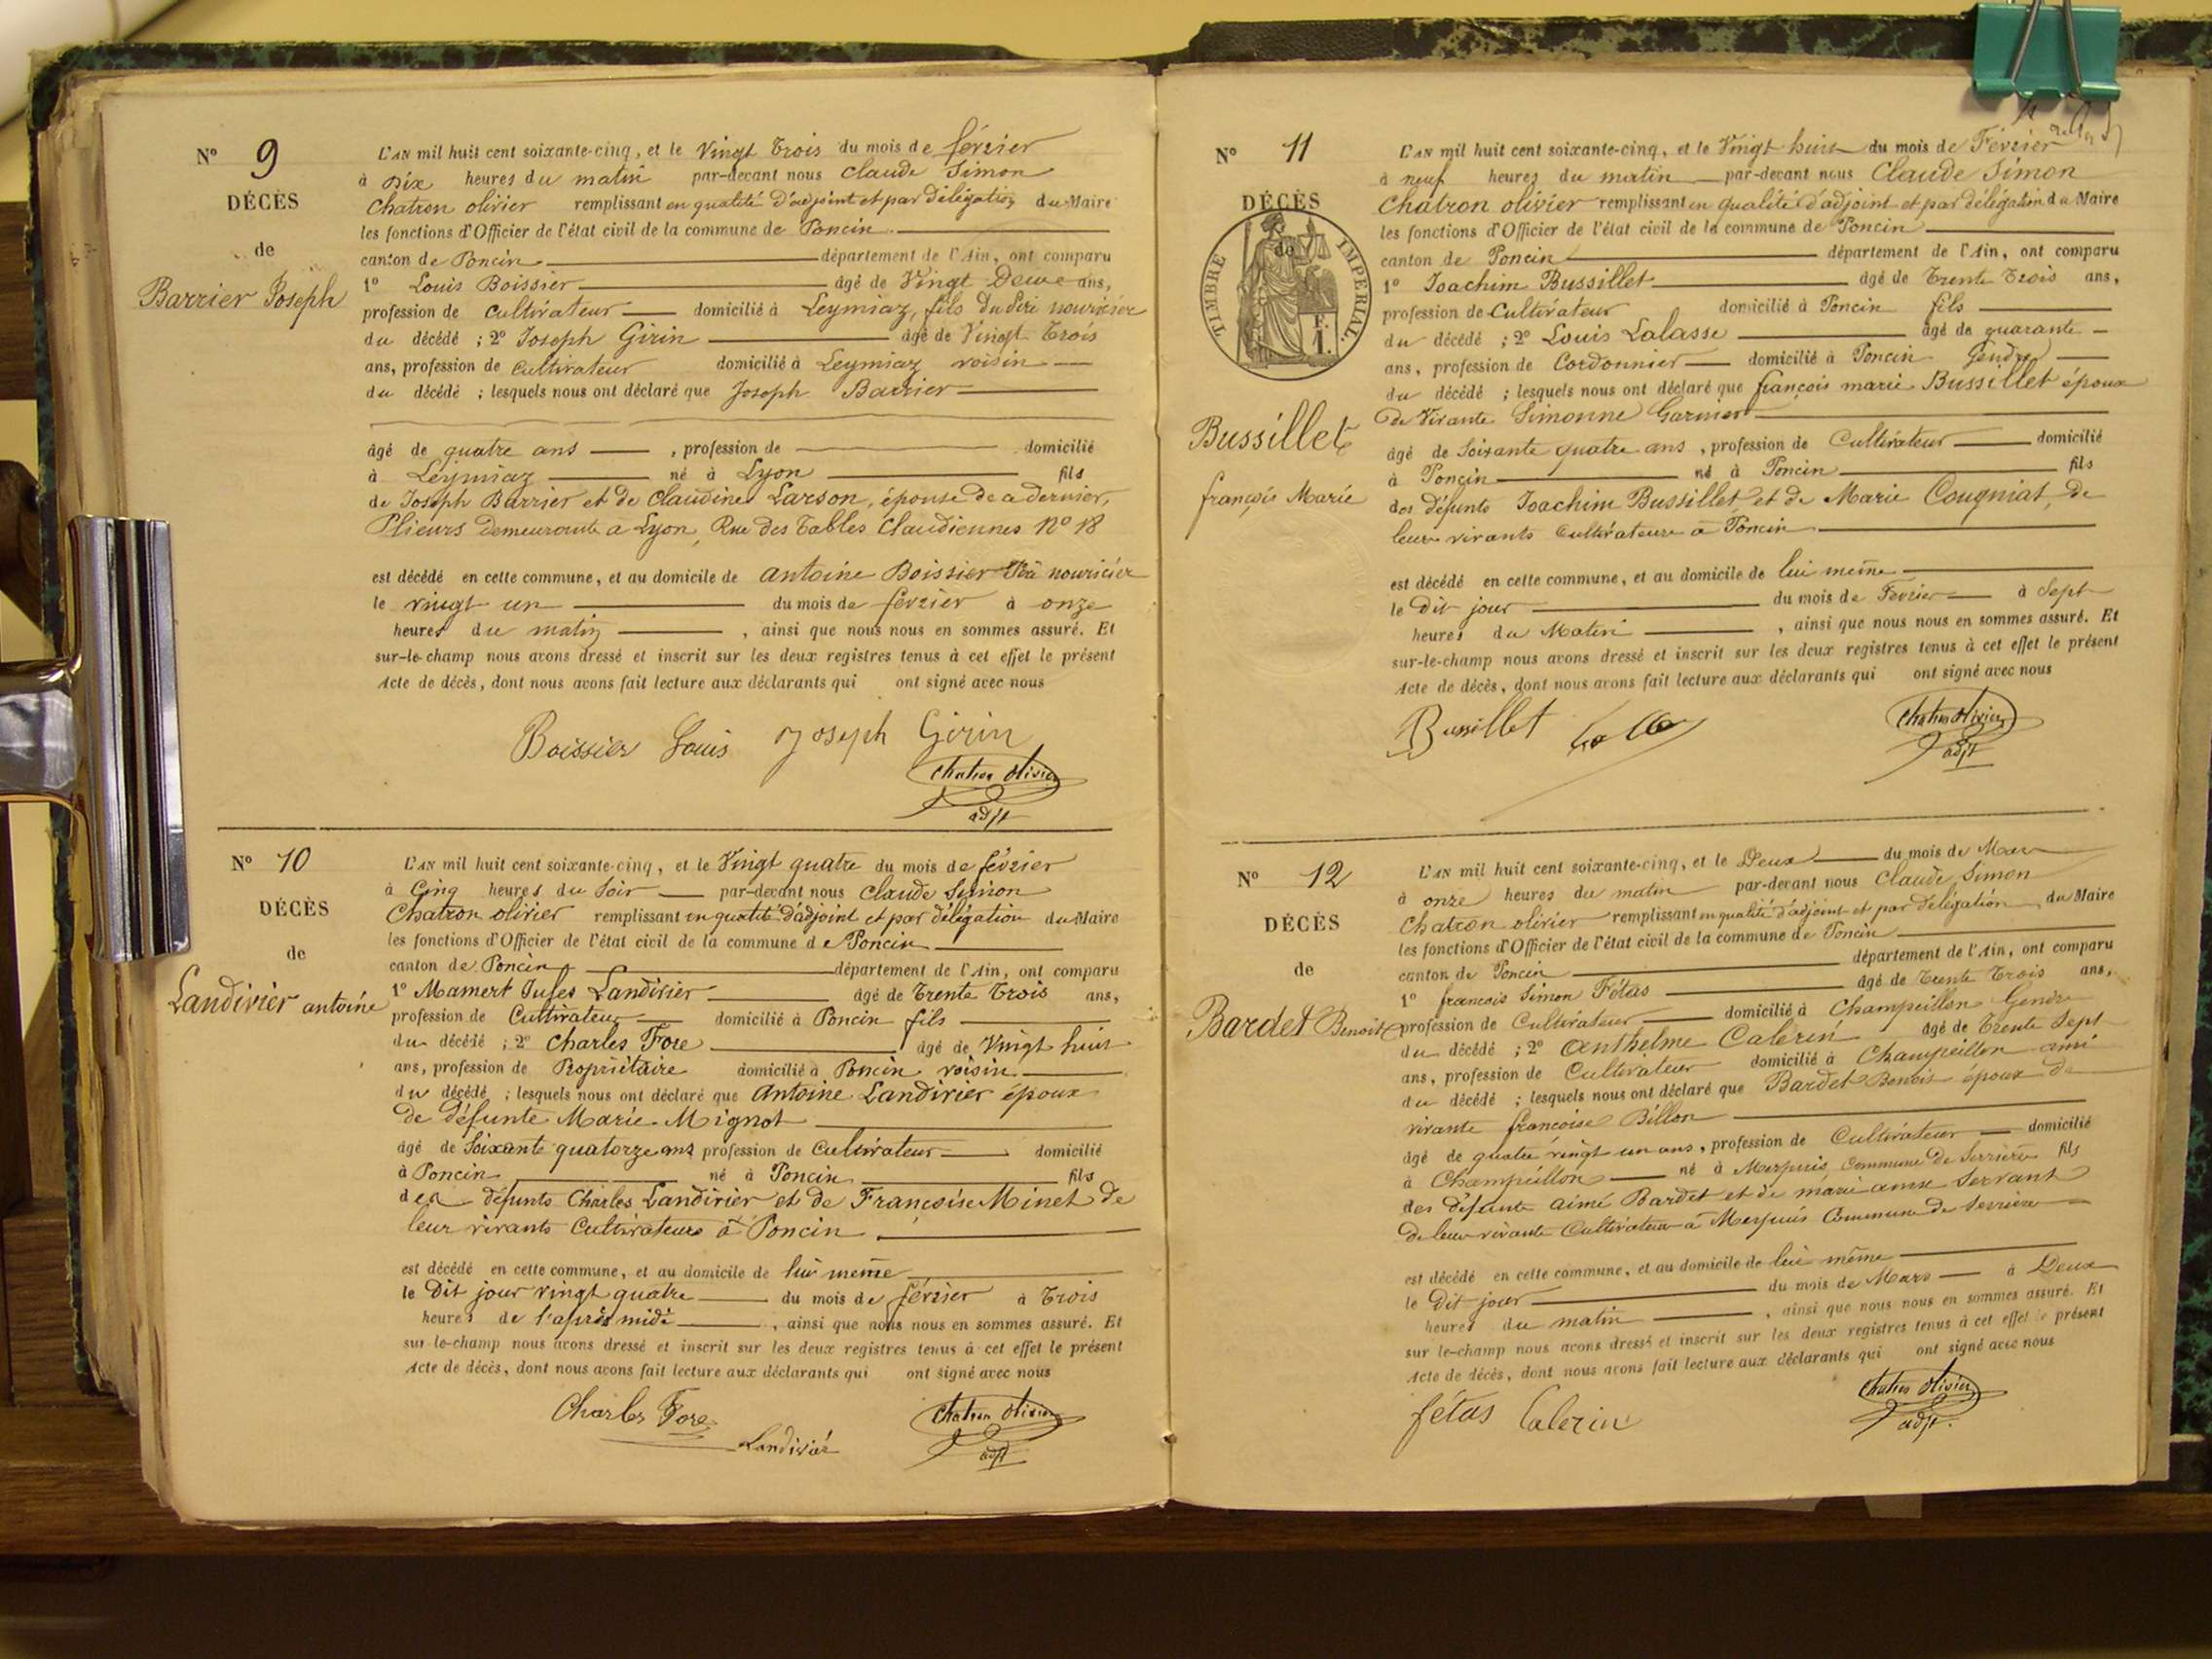 N° 9
DÉCÈS
de
Barrier Joseph
L'AN mil huit cent soixante-cinq, et le Vingt Trois du mois de février
à Dix heures du matin par-devant nous Claude Simon
Chatron olivier remplissant en qualité d'adjoint et par Délégation du Maire
les fonctions d'Officier de l'état civil de la commune de Poncin
canton de Poncin département de l'Ain, ont comparu
1° Louis Boissier âgé de Vingt Deux ans,
profession de Cultivateur domicilié à Leymiaz, fils du Père nourricier
du décédé ; 2° Joseph Girin âgé de Vingt Trois
ans, profession de Cultivateur domicilié à Leymiaz voisin
du décédé ; lesquels nous ont déclaré que Joseph Barrier
âgé de quatre ans , profession de domicilié
à Leymiaz né à Lyon fils
de Joseph Barrier et de Claudine Larson, épouse de ce dernier,
Plieurs demeurants a Lyon, Rue des Tables Claudiennes N° 18
est décédé en cette commune, et au domicile de antoine Boissier nouricier
le vingt un du mois de fevrier à onze
heures du matin , ainsi que nous nous en sommes assuré. Et
sur-le-champ nous avons dressé et inscrit sur les deux registres tenus à cet effet le présent
Acte de décès, dont nous avons fait lecture aux déclarants qui ont signé avec nous
Boissier Louis Joseph Girin
Chatron Olivier
adjt
N° 10
DÉCÈS
de
Landivier antoine
L'AN mil huit cent soixante-cinq, et le Vingt quatre du mois de février
à Cinq heures du Soir par-devant nous Claude Simon
Chatron olivier remplissant en qualité d'adjoint et par délégation du Maire
les fonctions d'Officier de l'état civil de la commune de Poncin
canton de Poncin département de l'Ain, ont comparu
1° Mamert Jules Landivier âgé de Trente Trois ans,
profession de Cultivateur domicilié à Poncin fils
du décédé ; 2° Charles Fore âgé de Vingt huit
ans, profession de Propriétaire domicilié à Poncin voisin
du décédé ; lesquels nous ont déclaré que Antoine Landivier époux
de défunte Marie Mignot
âgé de Soixante quatorze ans profession de Cultivateur domicilié
à Poncin né à Poncin fils
des défunts Charles Landivier et de Francoise Minet de
leur vivants Cultivateurs à Poncin
est décédé en cette commune, et au domicile de lui meme
le Dit jour vingt quatre du mois de février à Trois
heures de l'après midi , ainsi que nous nous en sommes assuré. Et
sur-le-champ nous avons dressé et inscrit sur les deux registres tenus à cet effet le présent
Acte de décès, dont nous avons fait lecture aux déclarants qui ont signé avec nous
Charles Fore
Landivier
Chatron Olivier
adjt
N° 11
DÉCÈS
de
TIMBRE IMPERIAL
F.
1.
Bussillet
françois Marie
L'AN mil huit cent soixante-cinq, et le Vingt huit du mois de Fevrier
à neuf heures du matin par-devant nous Claude Simon
Chatron olivier remplissant en qualité d'adjoint et par délégation du Maire
les fonctions d'Officier de l'état civil de la commune de Poncin
canton de Poncin département de l'Ain, ont comparu
1° Joachim Bussillet âgé de Trente Trois ans,
profession de Cultivateur domicilié à Poncin fils
du décédé ; 2° Louis Lalasse âgé de quarante
ans, profession de Cordonnier domicilié à Poncin Gendre
du décédé ; lesquels nous ont déclaré que françois marie Bussillet époux
de Vivante Simonne Garnier
âgé de Soixante quatre ans , profession de Cultivateur domicilié
à Poncin né à Poncin fils
des défunts Joachim Bussillet et de Marie Cougniat, de
leur vivants Cultivateurs à Poncin
est décédé en cette commune, et au domicile de lui meme
le Dit jour du mois de Fevrier à Sept
heures du Matin , ainsi que nous nous en sommes assuré. Et
sur-le-champ nous avons dressé et inscrit sur les deux registres tenus à cet effet le présent
Acte de décès, dont nous avons fait lecture aux déclarants qui ont signé avec nous
Bussillet
Chatron Olivier
adjt
N° 12
DÉCÈS
de
Bardet Benoit
L'AN mil huit cent soixante-cinq, et le Deux du mois de Mars
à onze heures du matin par-devant nous Claude Simon
Chatron olivier remplissant en qualité d'adjoint et par délégation du Maire
les fonctions d'Officier de l'état civil de la commune de Poncin
canton de Poncin département de l'Ain, ont comparu
1° francois Simon Fétas âgé de Trente Trois ans,
profession de Cultivateur domicilié à Champeillon Gendre
du décédé ; 2° Anthelme Calerin âgé de Trente Sept
ans, profession de Cultivateur domicilié à Champeillon ami
du décédé ; lesquels nous ont déclaré que Bardet Benoit époux de
vivante francoise Billon
âgé de quatre vingt un ans, profession de Cultivateur domicilié
à Champeillon né à Merpuis Commune de Serrière fils
des défunts aimé Bardet et de marie anne Servant
de leur vivants Cultivateurs à Merpuis Commune de Serrière
est décédé en cette commune, et au domicile de lui même
le Dit jour du mois de Mars à Deux
heures du matin , ainsi que nous nous en sommes assuré. Et
sur le-champ nous avons dressé et inscrit sur les deux registres tenus à cet effet le présent
Acte de décès, dont nous avons fait lecture aux déclarants qui ont signé avec nous
fétas Calerin
Chatron Olivier
adjt.